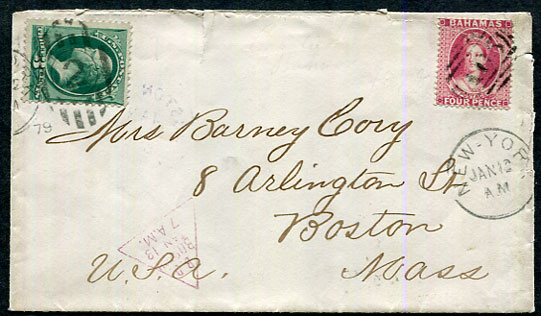 BAHAMAS
FOUR PENCE
79
Mrs Barney Cory
8 Arlington St.
Boston
U.S.A. Mass
NEW-YOR
JAN 12
A.M
7 A.M.